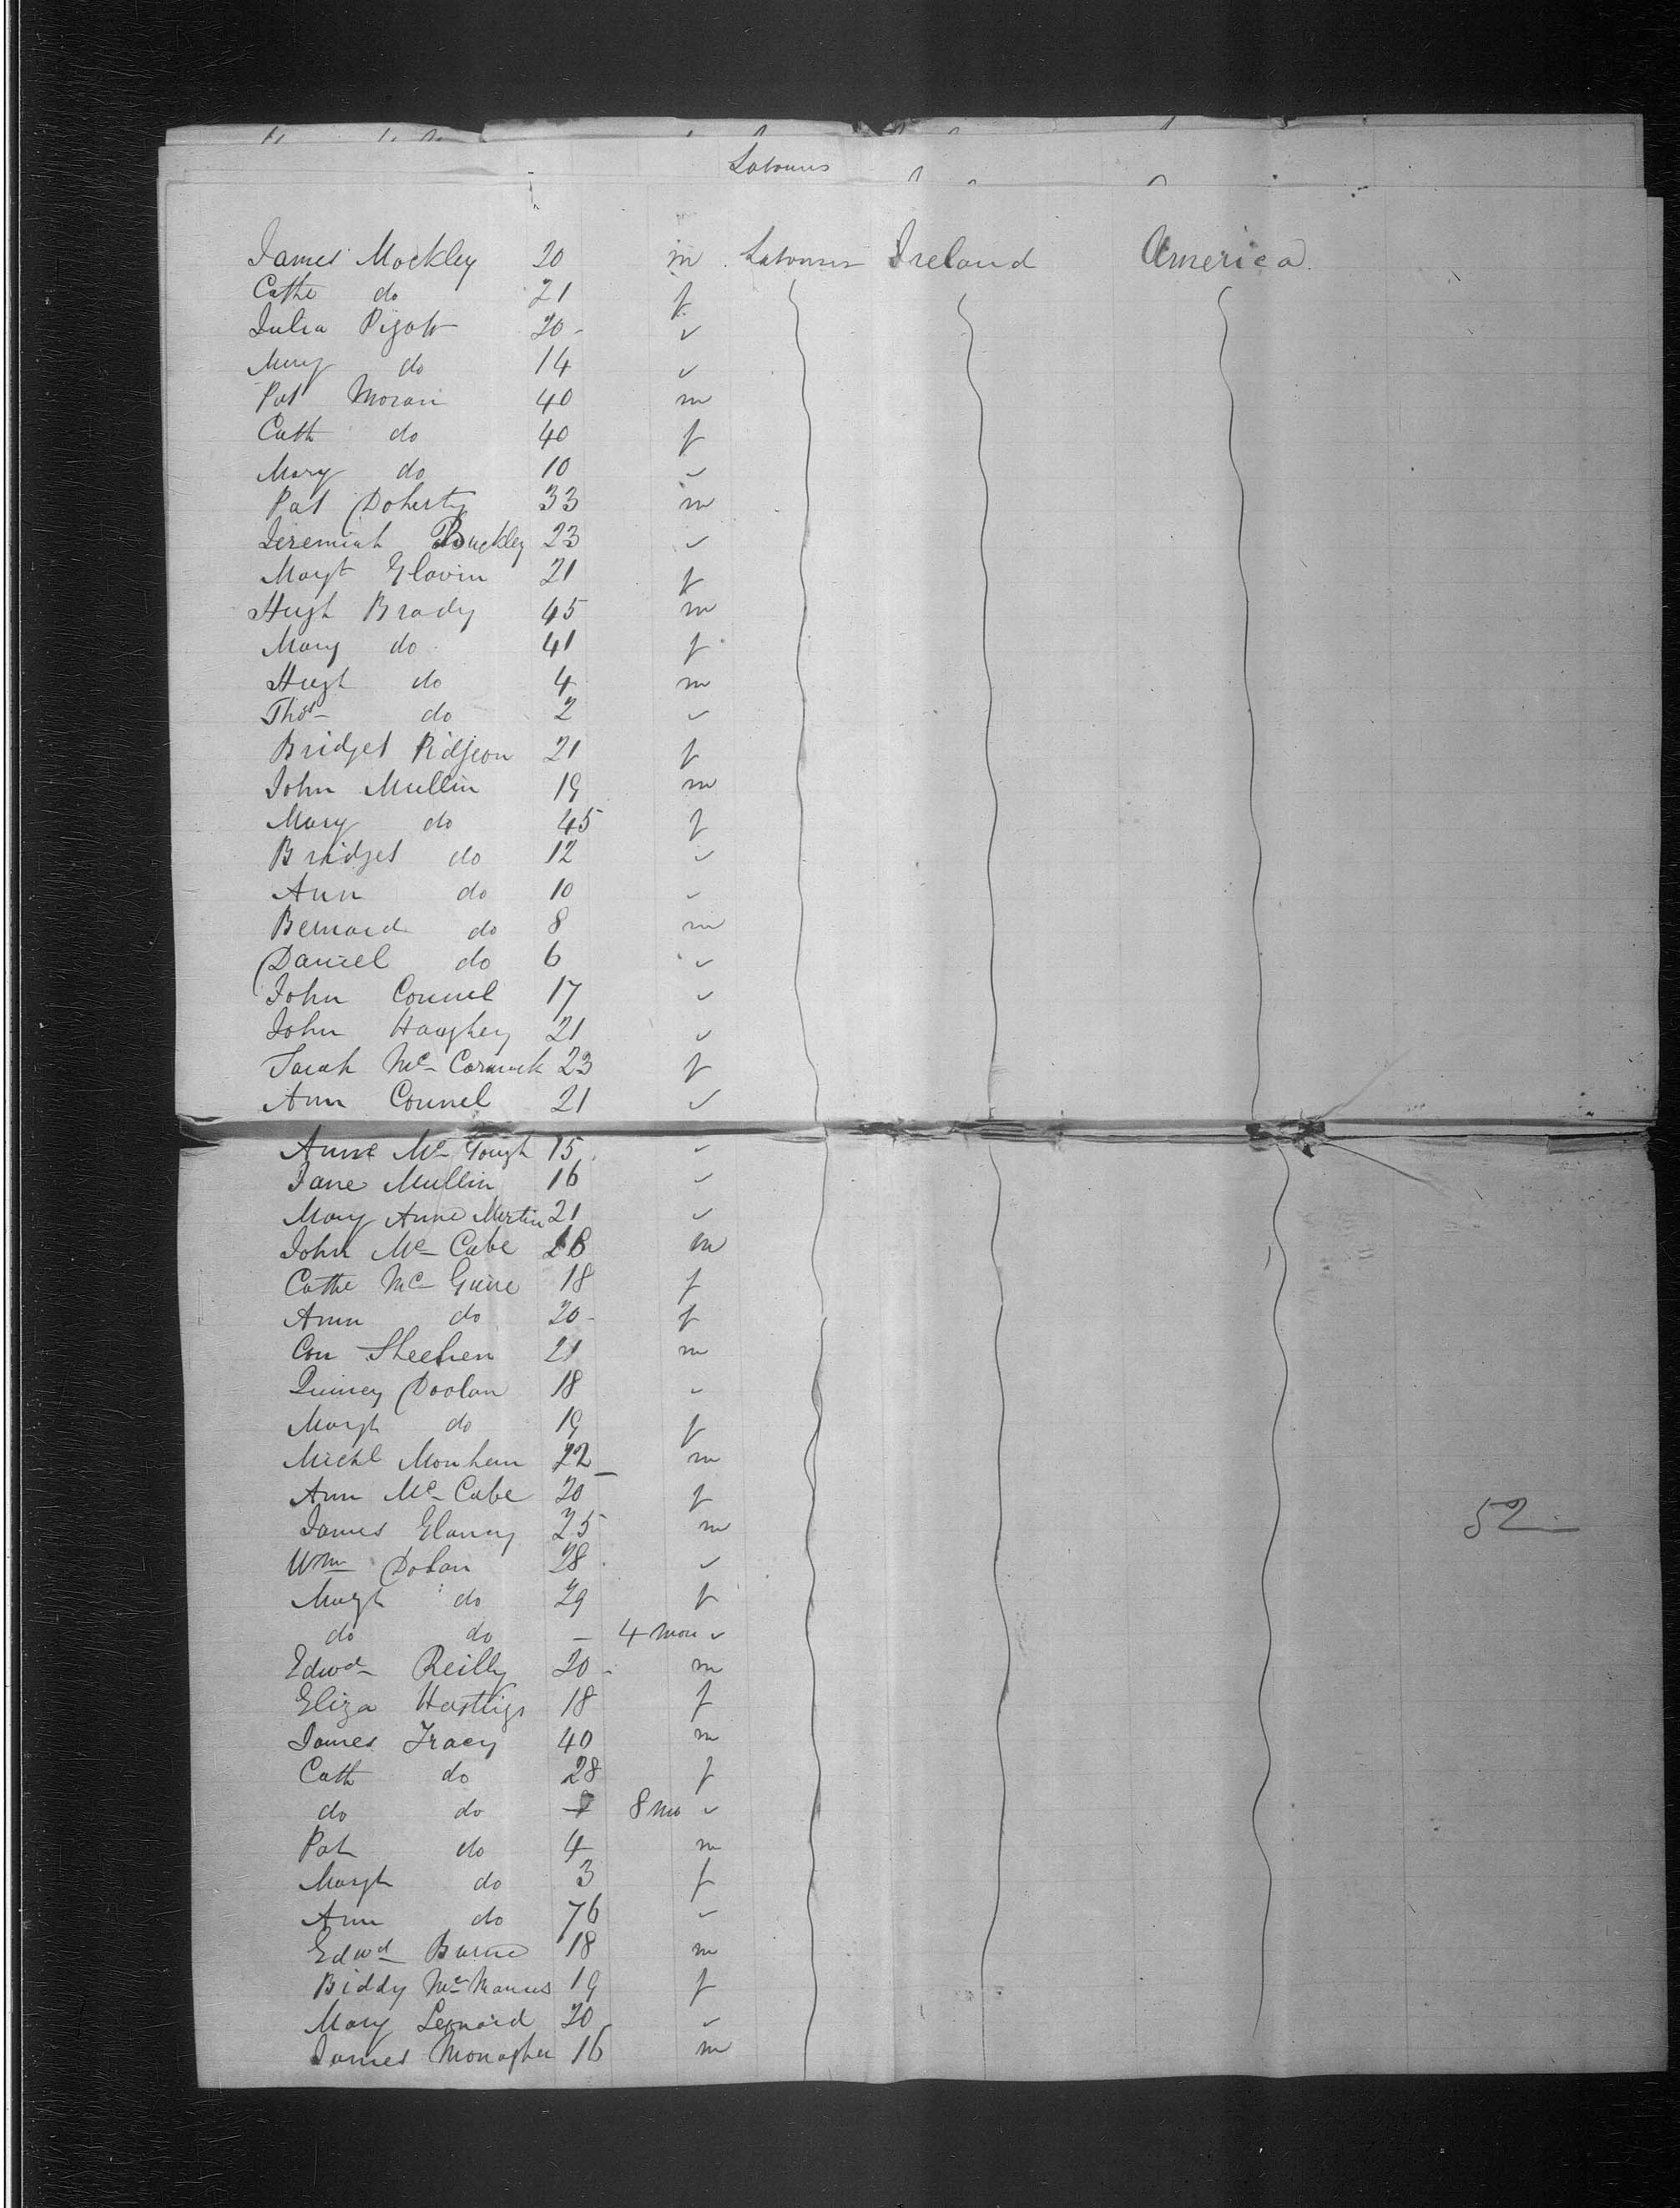 Labourers
James Mockley 20 m Labourers Ireland America
Cathe do 21 f
Julia Pigott 20 - ✓
Mary do 14 ✓
Pat Moran 40 m
Cath do 40 f
Mary do 10 ✓
Pat Doherty 33 m
Jeremiah Buckley 23 ✓
Margt Glavin 21 f
Hugh Brady 45 m
Mary do 41 f
Hugh do 4 m
Thos do 2 ✓
Bridget Pidgeon 21 f
John Mullin 19 m
Mary do 45 f
Bridget do 12 ✓
Ann do 10 ✓
Bernard do 8 m
Daniel do 6 ✓
John Connel 17 ✓
John Haughey 21 ✓
Sarah Mc Cormick 23 f
Ann Connel 21 ✓
Anne Mc Gough 15 ✓
Jane Mullin 16 ✓
Mary Anne Martin 21 ✓
John Mc Cabe m
Cathe Mc Guire 18 f
Ann do 20 - f
Con Sheehen 21 m
Doolan 18 ✓
Margt do 19 f
Michl Monhan 22 m
Ann Mc Cabe 20 f
James Glancy 25 m
52
Wm Dolan 28 ✓
Margt do 29 f
do do - 4 mon ✓
Edwd Reilly 20 - m
Eliza Hastigs 18 f
James Tracy 40 m
Cath do 28 f
do do 8 mo ✓
Pat do 4 m
Margt do 3 f
Ann do 76 ✓
Edwd Burne 18 m
Biddy Mc Manus 19 f
Mary Lennard 20 ✓
James Monaghen 16 m